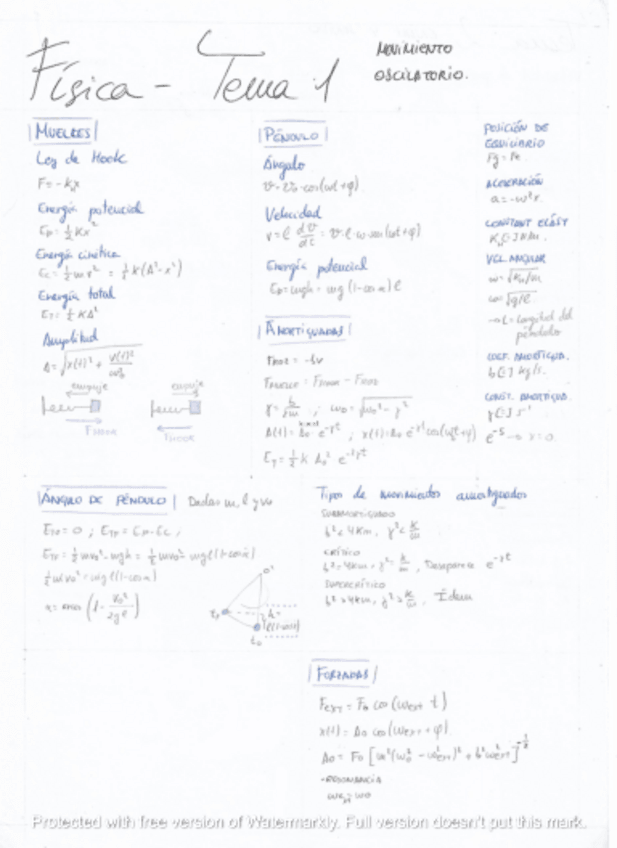 Física - Tema 1
MOVIMIENTO
OSCILATORIO.
MUELLES
Ley de Hook
F = -kx
Energía potencial
Ep = ½ Kx²
Energía cinética
Ec = ½ m v² = ½ K(A² - x²)
Energía total
ET = ½ KA²
Amplitud
A = √(x(t)² + v(t)²/ω₀²)
empuje
empuje
FHOOK
FHOOK
PÉNDULO
Ángulo
Velocidad
Energía potencial
Ep = mgh = mg (1 - cos α) l
AMORTIGUADAS
FROZ = -bv
γ = b/2m ; ω₀ = √(ω₀² - γ²)
POSICIÓN DE
EQUILIBRIO
Fg = Fe
ACELERACIÓN
a = -ω²x
CONSTANT ELÁST
VEL ANGULAR
ω = √g/l
→ L = Longitud del
péndulo
COEF. AMORTIGUA.
b [=] kg/s.
CONST. AMORTIGUA.
γ [=] s⁻¹
ÁNGULO DE PÉNDULO
Dados m, l y v₀
½ m v₀² = mg l (1 - cos α)
Tipos de movimientos amortiguados
SUBAMORTIGUADO
b² < 4Km, γ² < k/m
CRÍTICO
b² = 4Km, γ² = k/m, Desaparece e^-γt
SUPERCRÍTICO
b² > 4km, γ² > k/m, Ídem
FORZADAS
FEXT = F₀ cos (ωEXT t)
x(t) = A₀ cos (ωEXT + φ)
A₀ = F₀ [m²(ω₀² - ω²EXT)² + b²ω²EXT]^-½
-RESONANCIA
Protected with free version of Watermarkly. Full version doesn't put this mark.